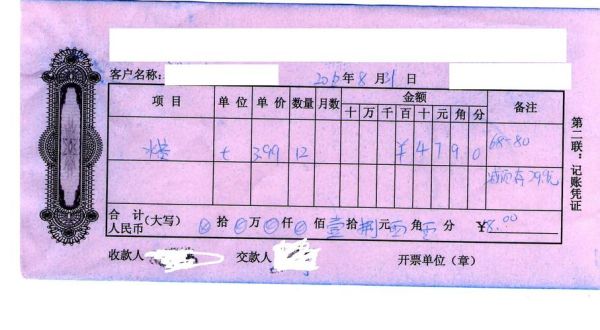 客户名称: 年8月31日
项目 单位 单价 数量 月数 金额 备注
十 万 千 百 十 元 角 分
水 t 3.99 12 ¥ 4 7 9 0 68-80
合计人民币 (大写) 拾 万 仟 佰 壹拾捌元 角 分 ¥8.00
收款人 交款人 开票单位(章)
第二联:记账凭证